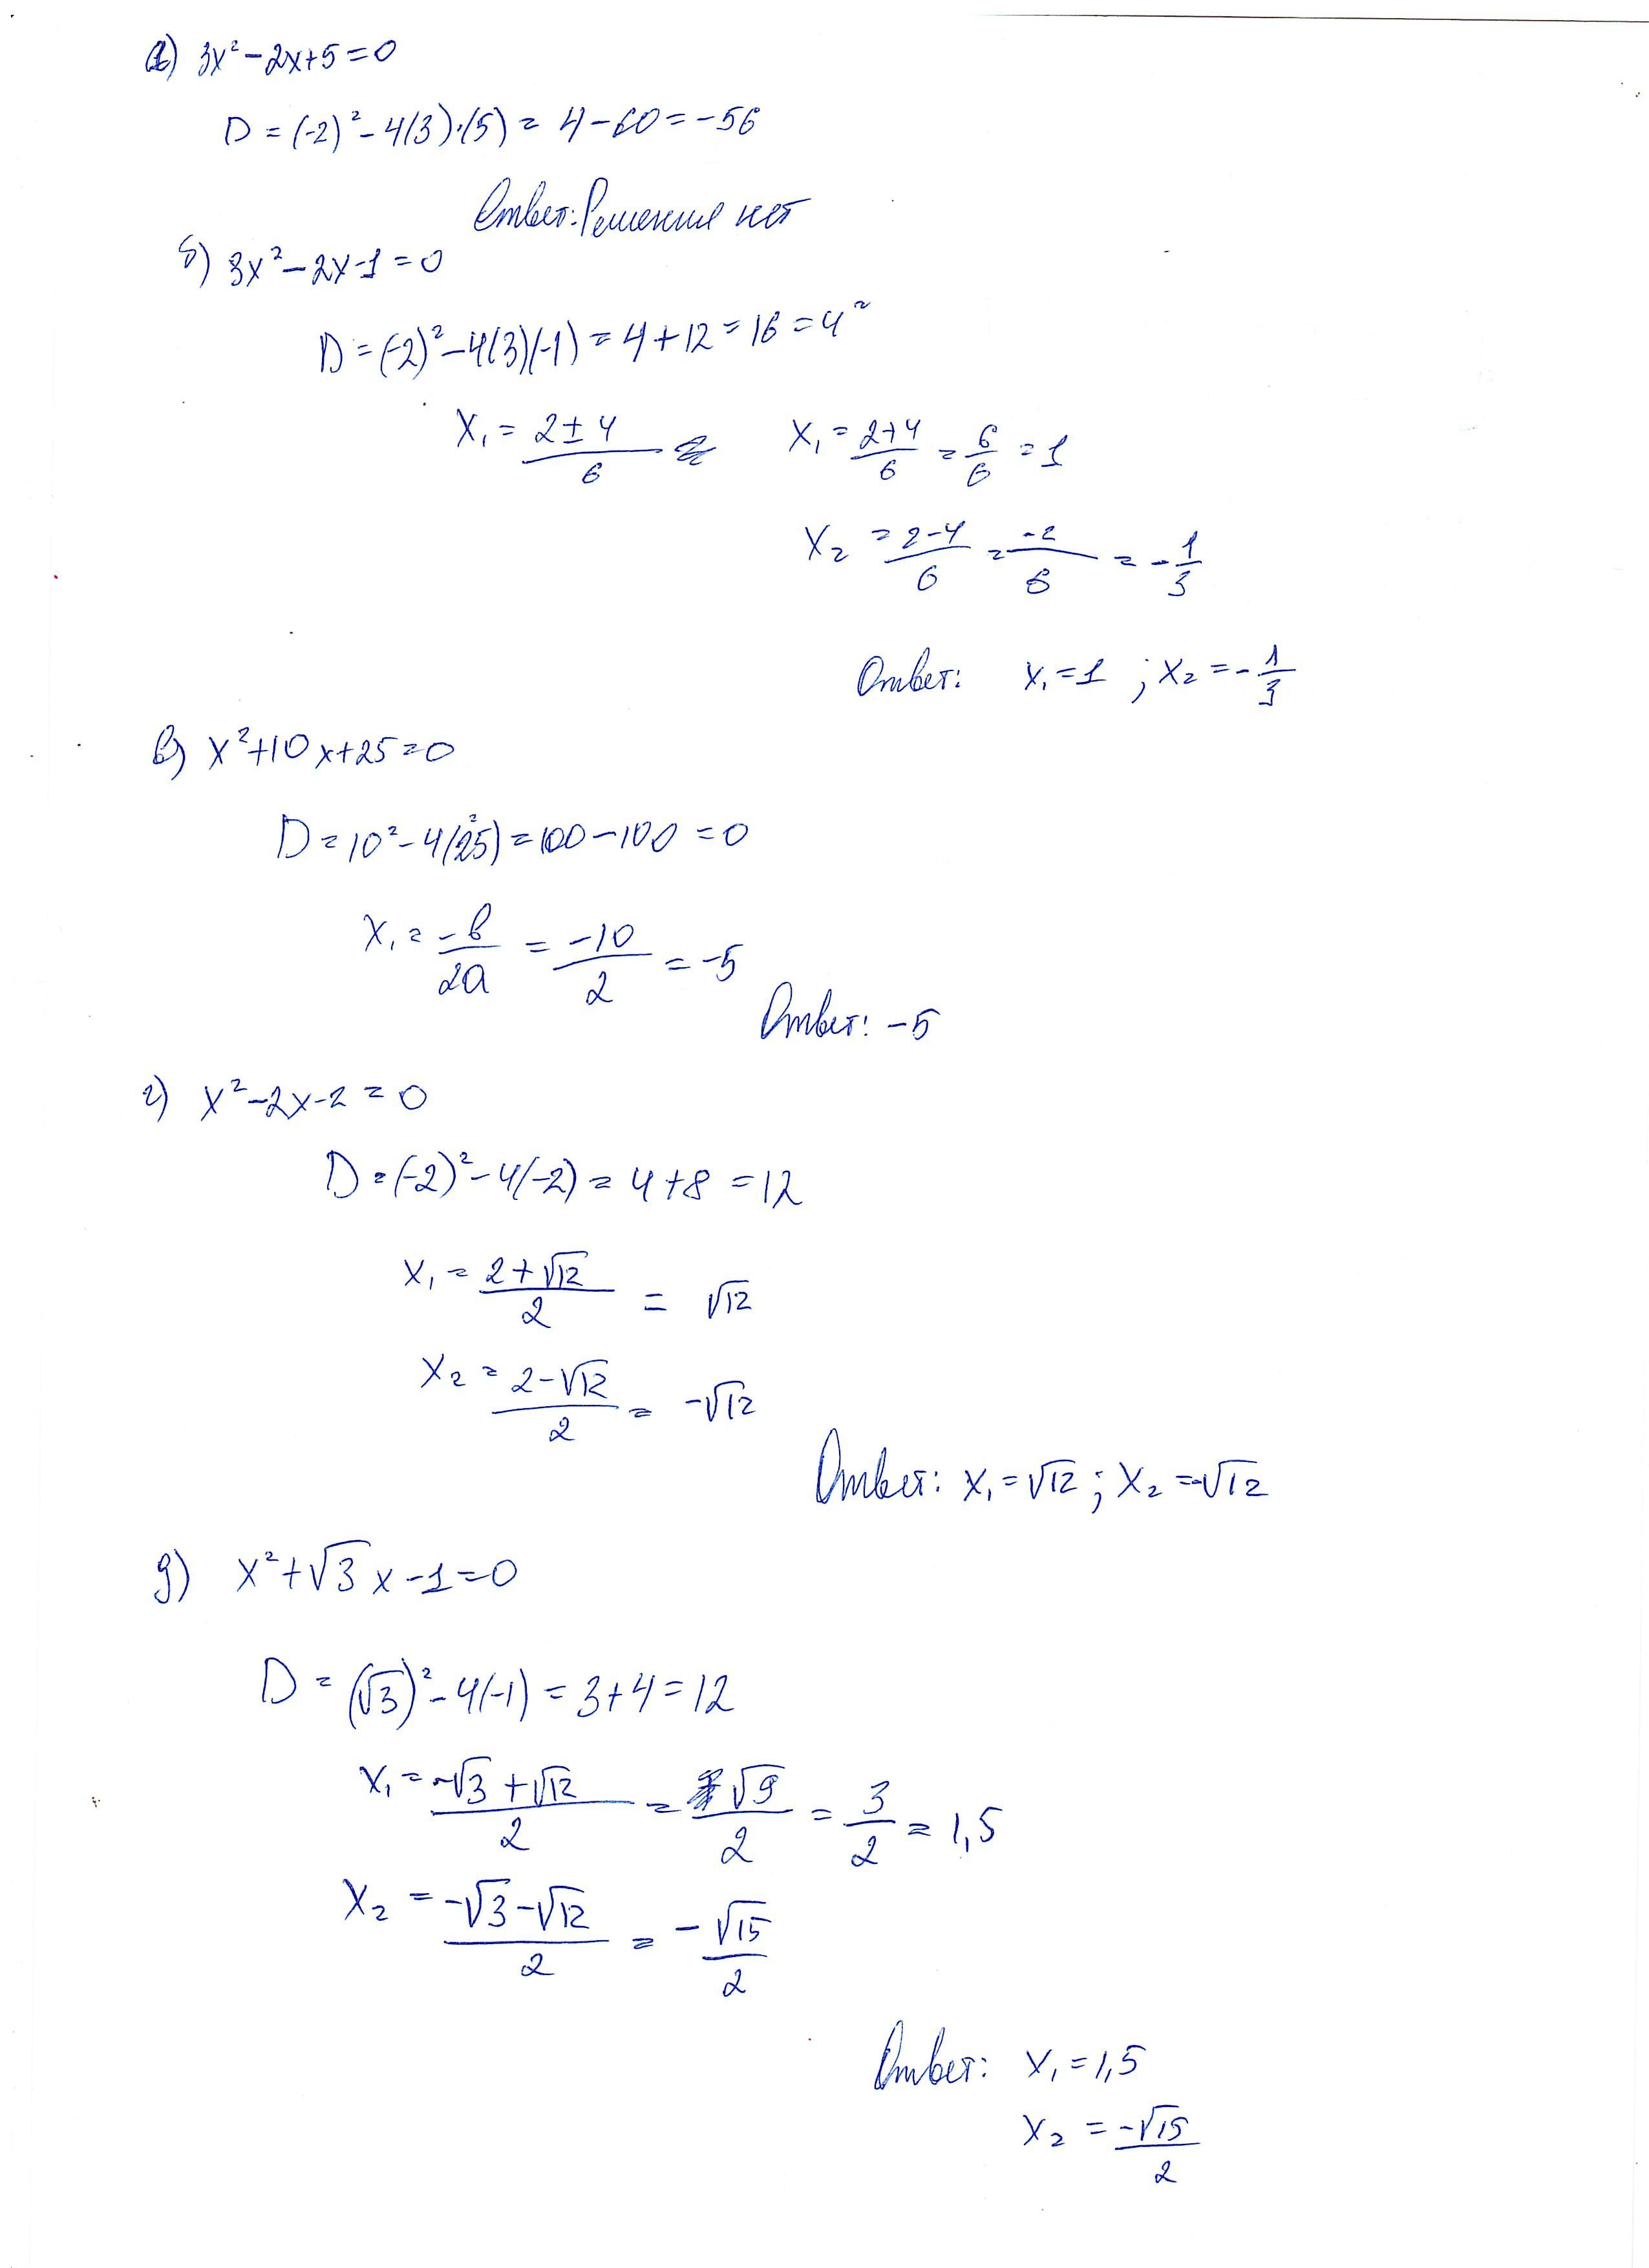 а) 3x² - 2x + 5 = 0
D = (-2)² - 4(3)·(5) = 4 - 60 = -56
Ответ: Решения нет
б) 3x² - 2x - 1 = 0
D = (-2)² - 4(3)(-1) = 4 + 12 = 16 = 4²
x₁ = (2 ± 4)/6 x₁ = (2+4)/6 = 6/6 = 1
x₂ = (2-4)/6 = -2/6 = -1/3
Ответ: x₁ = 1 ; x₂ = -1/3
в) x² + 10x + 25 = 0
D = 10² - 4(25) = 100 - 100 = 0
x₁ = -b/2a = -10/2 = -5
Ответ: -5
г) x² - 2x - 2 = 0
D = (-2)² - 4(-2) = 4 + 8 = 12
x₁ = (2 + √12)/2 = √12
x₂ = (2 - √12)/2 = -√12
Ответ: x₁ = √12 ; x₂ = -√12
д) x² + √3x - 1 = 0
D = (√3)² - 4(-1) = 3 + 4 = 12
x₁ = (-√3 + √12)/2 = √9/2 = 3/2 = 1,5
x₂ = (-√3 - √12)/2 = -√15/2
Ответ: x₁ = 1,5
x₂ = -√15/2